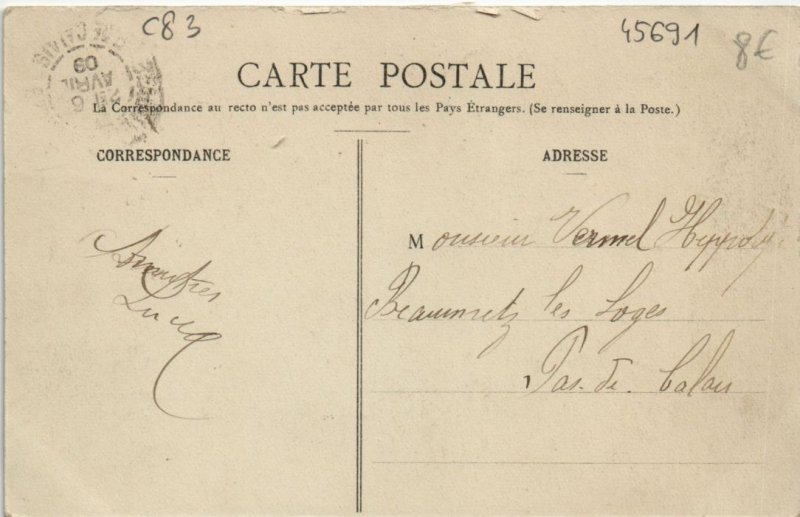 C83
45691
8€
CALAIS
6
AVRIL
09
CARTE POSTALE
La Correspondance au recto n'est pas acceptée par tous les Pays Étrangers. (Se renseigner à la Poste.)
CORRESPONDANCE
ADRESSE
Monsieur Vermel Hyppolyte
Beaumetz les Loges
Pas-de-Calais